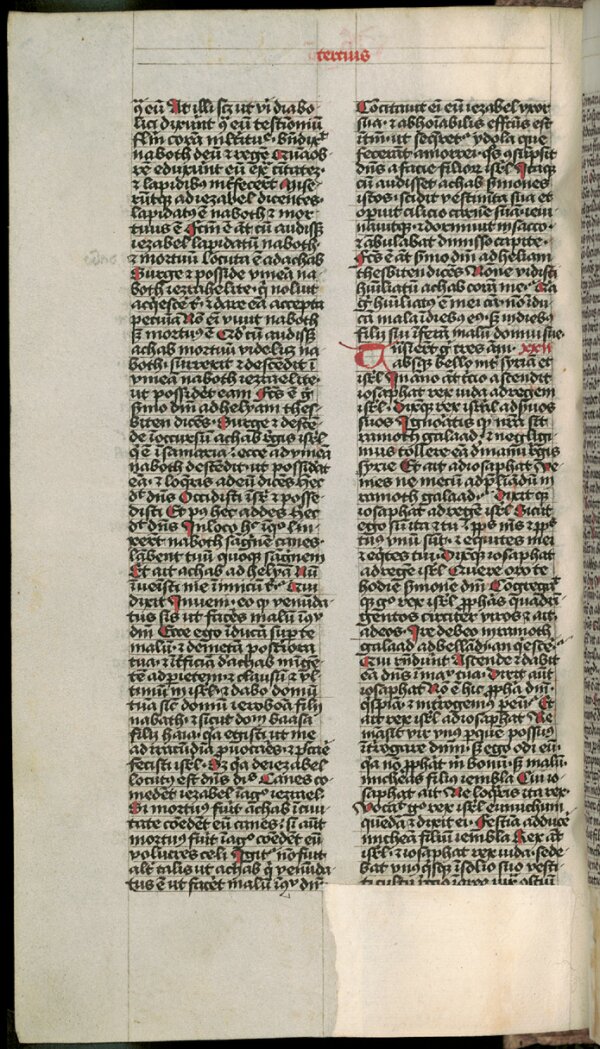 tertius
q̄ eū At illi scꝫ ut viri diabo
lici dixerunt ꝯ eū testimoniū
naboth deū ⁊ regē Quaob
rē eduxerunt eū ex͂ citatē
⁊ lapidibꝰ int̄fecerūt Mise
rūtqꝫ ad iezabel dicentes
lapidatꝰ ē naboth ⁊ mor
tuus ē Fc̄m ē āt cū audissꝫ
iezabel lapidatū naboth
⁊ mortuū locuta ē ad achab
Surge ⁊ posside vineā na
both iezrahelite q̄ noluit
acq̇escē t̄ ⁊ dare eā accepta
pecūia Nō em̄ viuit naboth
sꝫ mortuꝰ ē Qd̄ cū audissꝫ
achab mortuū videlicꝫ na
both surrexit ⁊ descēdit ī
vineā naboth iezraelite
ut possidēt eam Fc̄s ē g̊
s̄mo dn̄i ad helyam thes
biten dicēs Surge ⁊ descē
de ī occursū achab regis isrl̄
q̄ ē ī samaria ⁊ ecce ad vineā
naboth descēdit ut possideat
eā ⁊ loq̄ris ad eū dicēs Hec
dc̄ dn̄s Occidisti īsuꝑ ⁊ posse
disti Et pꝰ hec addes Hec
dc̄ dn̄s In loco hͦ ī qͦ lin
xerūt naboth sāgnē canes
lābent tuū quoqꝫ sāgnem
Et ait achab ad helyā Nū
īuenisti me īimicū t̄ Qui
dixit Inueni eo qͦ venūda
tus sis ut facēs malū ī 9sp̄u
dn̄i Ecce ego īducā suꝑ te
malū ⁊ demetā posteriora
tua ⁊ īt̄ficiā d'achab mīgē
tē ad pietem ⁊ clausū ⁊ vl
timū in isrl̄ ⁊ dabo domū
tuā sic̄ domū ieroboā filij
nabath ⁊ sicut domū baasa
filij haia qͣ egisti ut me
ad iracūdiā ꝓuocaēs ⁊ pc̄cāe
fecisti isrl̄ Sꝫ ⁊ de iezabel
locutꝰ est dn̄s dīs Canes co
medēt iezabel ī agͦ iezrael
Si mortuꝰ fuit achab ī ciui
tate cōedēt eū canes si aūt
mortuꝰ fuit ī agͦ cōedēt eū
volucres celi Igit̄ nō fuit
alt̄ talis ut achab q̇ venūda
tus ē ut facēt malū ī 9sp̄u dn̄i
Cōcitauit em̄ eū iezabel vxor
sua ⁊ abhōīabilis effc̄tus est
itm̄ ut secret̄ ydola que
fecerāt amorrei q̄s 9sūpsit
dn̄s a facie filioꝝ isrl̄ Itaqꝫ
cū audisset achab s̄mones
istos scidit vestimēta sua ⁊
oꝑuit cilicio carnē suā ieiu
nauitqꝫ ⁊ dormiuit in sacco
⁊ ābulabat dimisso capite
Fc̄s ē āt s̄mo dn̄i ad heliam
thesbiten dicēs Nōne vidisti
hūiliatū achab corā me Qa
g̊ hūiliatꝰ ē mei cā nō īdu
cā malū ī diebꝰ eiꝰ sꝫ ī diebꝰ
filij sui īferā malū domui sue
Tnsiert̄ g̊ tres āni xxij
absqꝫ bello int̄ syriā et
isrl̄ In āno āt t̄cio ascendit
iosaphat rex iuda ad regem
isrl̄ Dixitqꝫ rex isrl̄ ad s̄uos
suos Ignoratis q̊ nr̄a sit
ramoth galaad ⁊ negligi
mus tollere eā d'manu regis
syrie Et ait ad iosaphat Ve
nies ne mecū ad p̄liandū in
ramoth galaad Dixit qꝫ
iosaphat ad regē isrl̄ Sicut
ego sū ita ⁊ tu ⁊ ppl̄s mꝰ ⁊ ppl̄s
tuus vnū sūt ⁊ equites mei
⁊ eq̇tes tui Dixitqꝫ iosaphat
ad regē isrl̄ Quere oro te
hodie s̄monē dn̄i Cōgregauit
qꝫ g̊ rex isrl̄ ꝓphās quadrī
gentos circiter viros ⁊ ait
ad eos Ire debeo ī ramoth
galaad ad bellādū an q̇escē
Qui rn̄dunt Ascende ⁊ dabit
eā dn̄s ī manꝰ tua Dixit aūt
iosaphat Nō ē hic ꝓphā dn̄i
q̇sp̄iā ⁊ int̄rogemꝰ ꝑ eū Et
ait rex isrl̄ ad iosaphat Re
māsit vir vnꝰ ꝑ quē possumꝰ
īt̄rogare dn̄m sꝫ ego odi eū
qͣ nō ꝓphāt m̄ bonū sꝫ malū
micheas filius iembla Cui io
saphat ait Ne loq̄ris ita rex
Vocauit g̊ rex isrl̄ eunuchum
quendā ⁊ dixit ei Festīa adducē
micheā filiū iembla Rex āt
isrl̄ ⁊ iosaphat rex iuda sede
bāt vnꝰq̇sqꝫ ī solio suo vesti